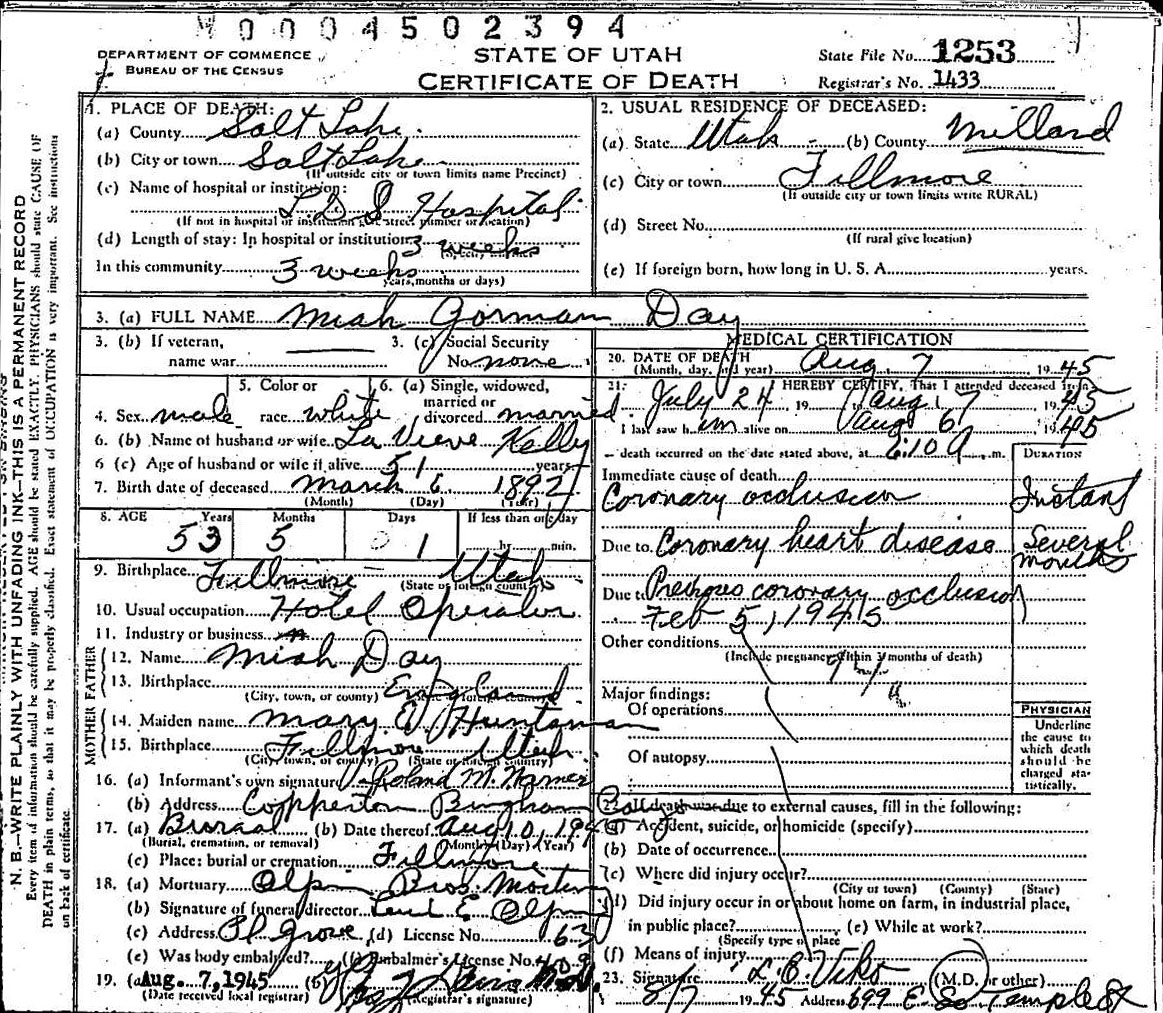 0004502394
DEPARTMENT OF COMMERCE
BUREAU OF THE CENSUS
STATE OF UTAH
CERTIFICATE OF DEATH
State File No. 1253
Registrar's No. 1433
N. B.—WRITE PLAINLY WITH UNFADING INK—THIS IS A PERMANENT RECORD
Every item of information should be carefully supplied. AGE should be stated EXACTLY. PHYSICIANS should state CAUSE OF
DEATH in plain terms, so that it may be properly classified. Exact statement of OCCUPATION is very important. See instructions
on back of certificate.
1. PLACE OF DEATH:
(a) County Salt Lake
(b) City or town Salt Lake
(If outside city or town limits name Precinct)
(c) Name of hospital or institution:
L D S Hospital
(If not in hospital or institution give street number or location)
(d) Length of stay: In hospital or institution 3 weeks
In this community 3 weeks
years, months or days)
2. USUAL RESIDENCE OF DECEASED:
(a) State Utah (b) County Millard
(c) City or town Fillmore
(If outside city or town limits write RURAL)
(d) Street No.
(If rural give location)
(e) If foreign born, how long in U. S. A. years.
3. (a) FULL NAME Miah Gorman Day
3. (b) If veteran, name war
3. (c) Social Security No. none
4. Sex male
5. Color or race white
6. (a) Single, widowed, married or divorced married
6. (b) Name of husband or wife La Vieve Kelly
6 (c) Age of husband or wife if alive 51 years
7. Birth date of deceased March 6 1892
(Month) (Day) (Year)
8. AGE Years Months Days If less than one day
53 5 1 hr. min.
9. Birthplace Fillmore Utah
(State or foreign country)
10. Usual occupation Hotel Operator
11. Industry or business
FATHER
12. Name Miah Day
13. Birthplace England
(City, town, or county) (State or foreign country)
MOTHER
14. Maiden name Mary E Huntsman
15. Birthplace Fillmore Utah
(City, town, or county) (State or foreign country)
16. (a) Informant's own signature Roland M.
(b) Address Copperton Bingham
17. (a) Burial (b) Date thereof Aug 10, 1945
(Burial, cremation, or removal) (Month) (Day) (Year)
(c) Place: burial or cremation Fillmore
18. (a) Mortuary Olpin Bros. Mortuary
(b) Signature of funeral director E Olpin
(c) Address Pl Grove (d) License No. 63
(e) Was body embalmed? yes (f) Embalmer's License No. 409
19. (a) Aug. 7, 1945 (b)
(Date received local registrar) (Registrar's signature)
MEDICAL CERTIFICATION
20. DATE OF DEATH Aug. 7 1945
(Month, day, and year)
21. I HEREBY CERTIFY, That I attended deceased from
July 24 19 to Aug 7 1945
I last saw him alive on Aug 6 1945
— death occurred on the date stated above, at :10 a. m.
DURATION
Immediate cause of death
Coronary occlusion Instant
Due to Coronary heart disease Several months
Due to Previous coronary occlusion
Feb 5, 1945
Other conditions
(Include pregnancy within 3 months of death)
94a
Major findings:
Of operations
Of autopsy
PHYSICIAN
Underline
the cause to
which death
should be
charged sta-
tistically.
22. If death was due to external causes, fill in the following:
(a) Accident, suicide, or homicide (specify)
(b) Date of occurrence
(c) Where did injury occur?
(City or town) (County) (State)
(d) Did injury occur in or about home on farm, in industrial place,
in public place? (e) While at work?
(Specify type of place
(f) Means of injury
23. Signature L. E. Viko (M.D. or other)
8/7 1945 Address 699 E So Temple St